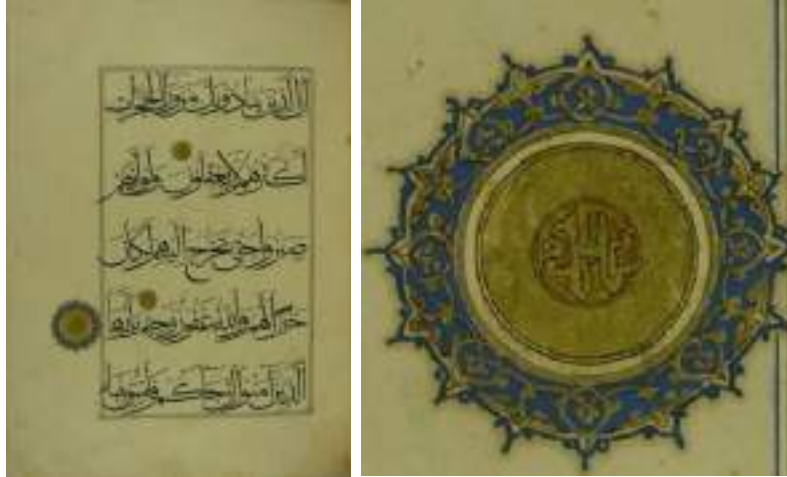 ان الذين ينادونك من ورا الحجرات
اكثرهم لا يعقلون ولو انهم
صبروا حتى تخرج اليهم لكان
خيرا لهم والله غفور رحيم يا ايها
الذين امنوا ان جاكم فاسق بنبا